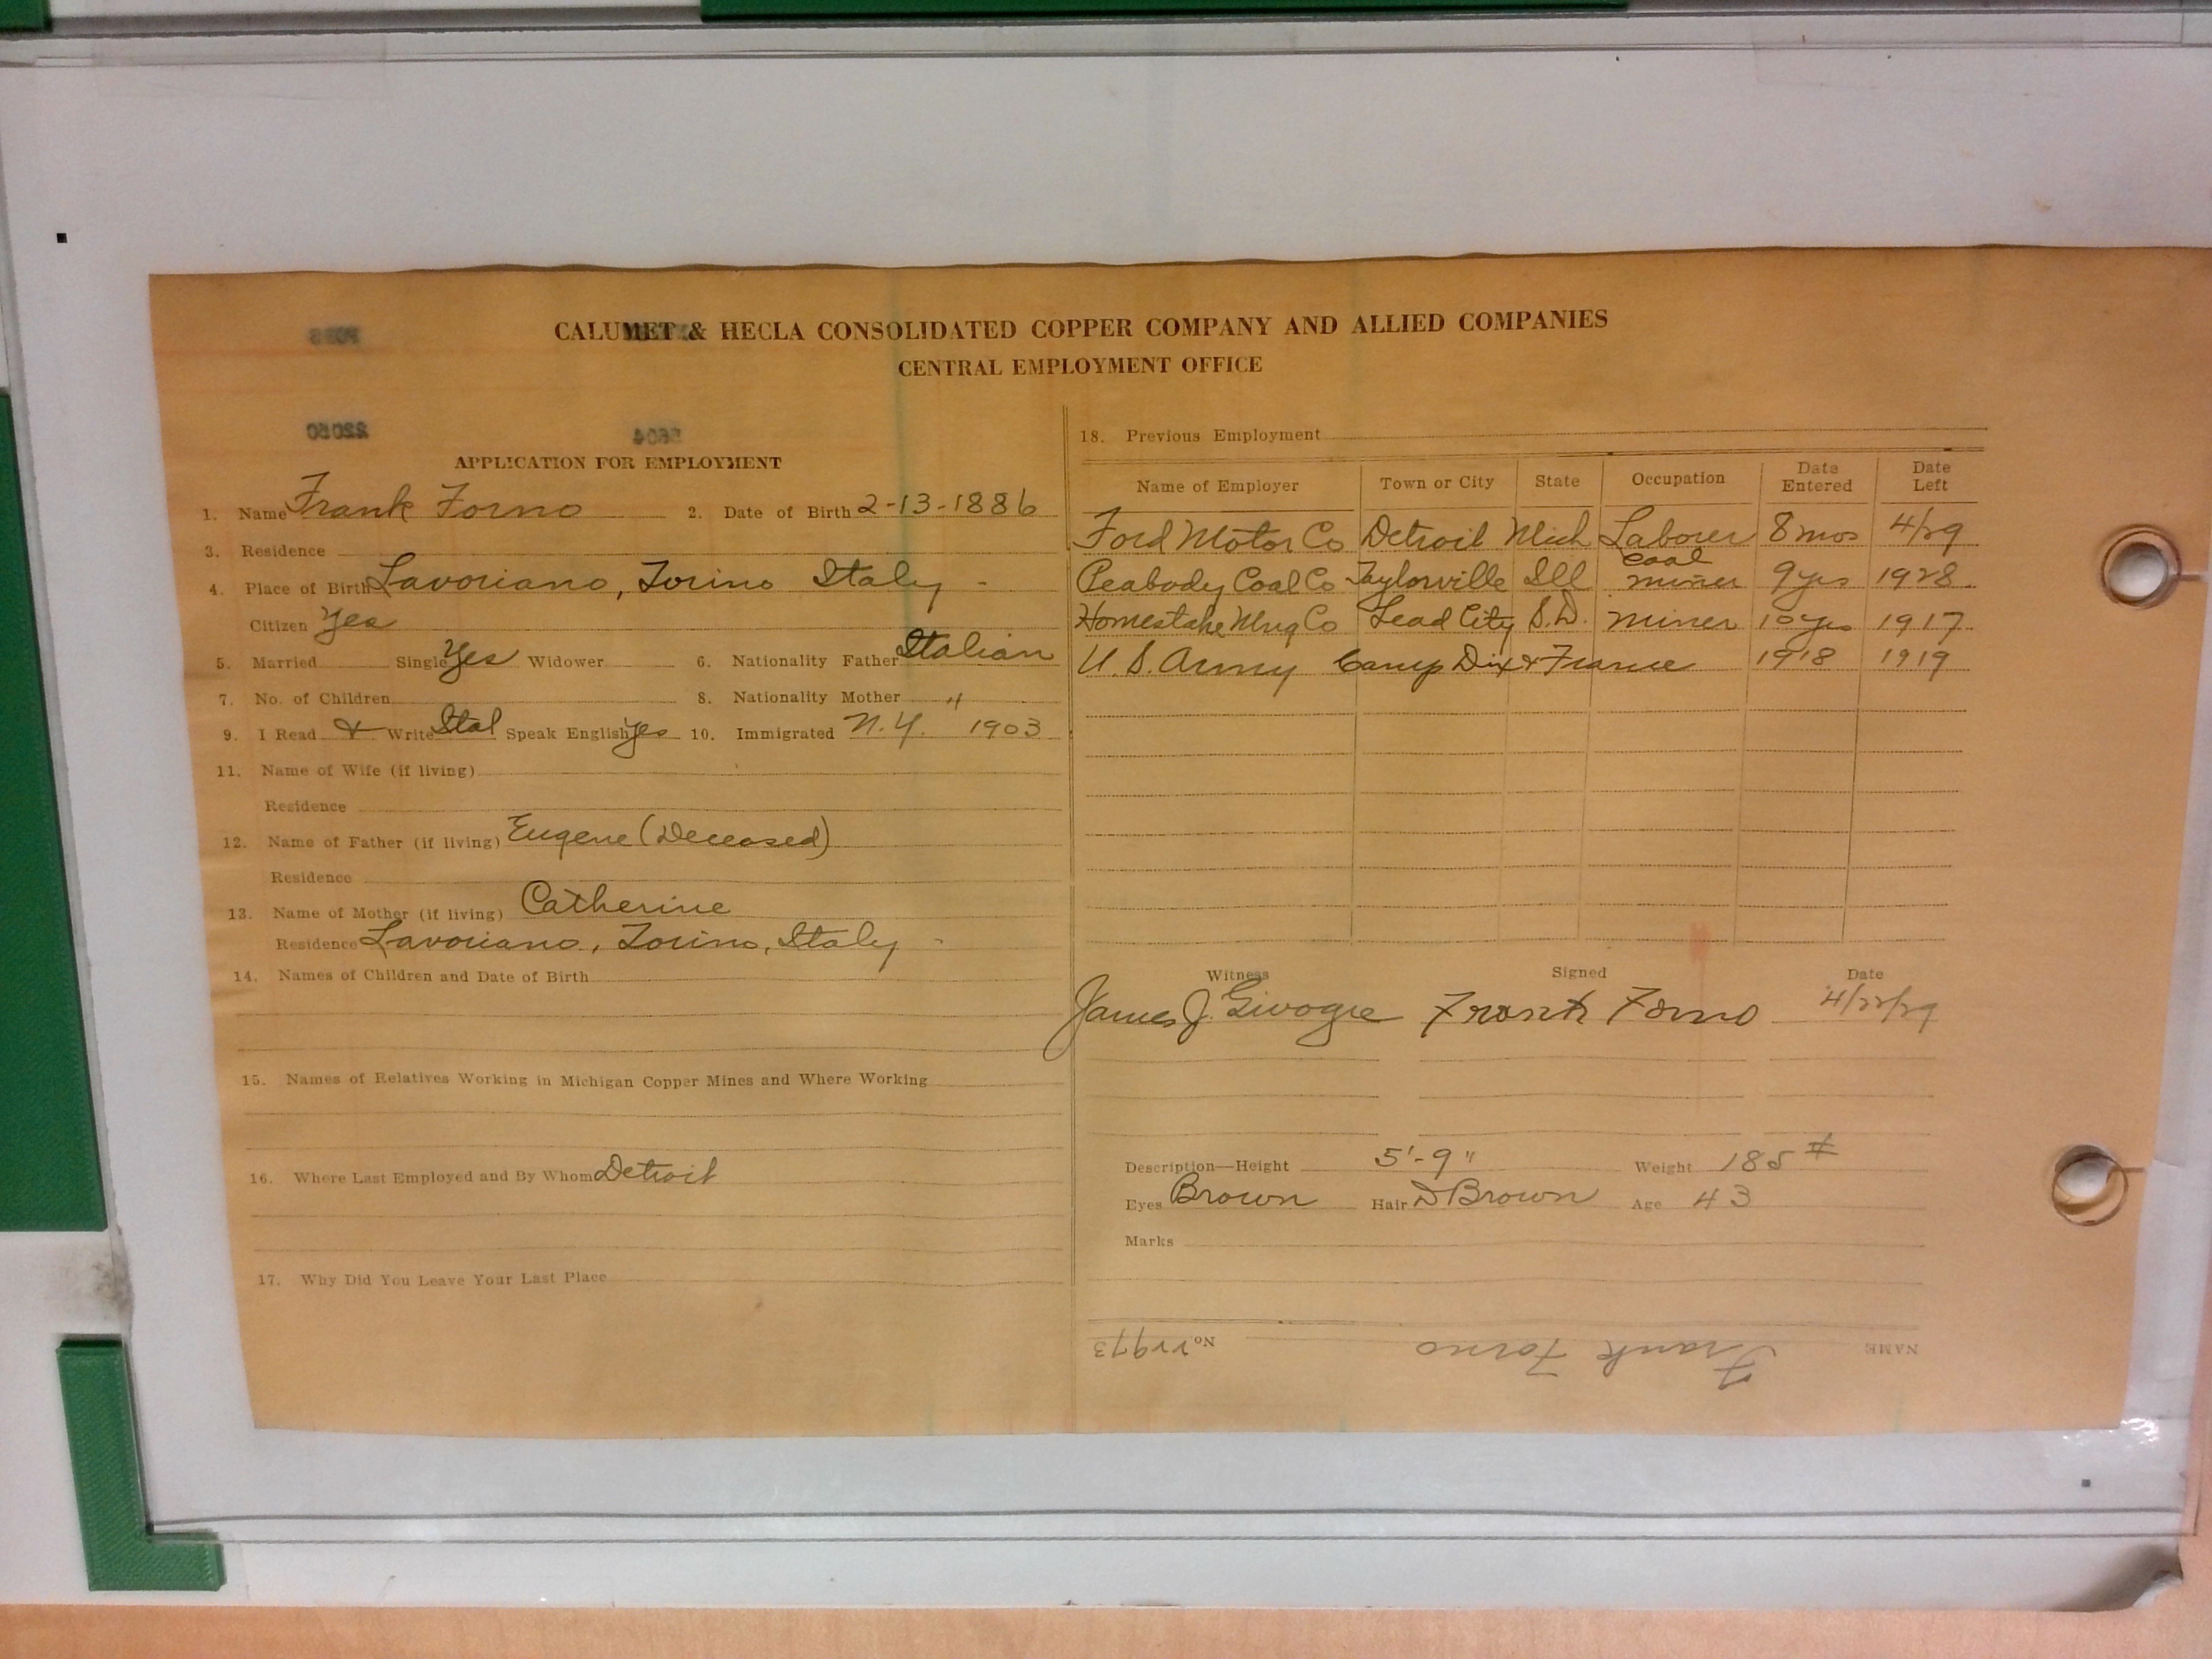 CALUMET & HECLA CONSOLIDATED COPPER COMPANY AND ALLIED COMPANIES
CENTRAL EMPLOYMENT OFFICE
22050 5604
APPLICATION FOR EMPLOYMENT
1. Name Frank Forno 2. Date of Birth 2-13-1886
3. Residence
4. Place of Birth Lavoriano, Torino Italy -
Citizen Yes
5. Married Single Yes Widower 6. Nationality Father Italian
7. No. of Children 8. Nationality Mother "
9. I Read & Write Ital Speak English Yes 10. Immigrated N.Y. 1903
11. Name of Wife (if living)
Residence
12. Name of Father (if living) Eugene (Deceased)
Residence
13. Name of Mother (if living) Catherine
Residence Lavoriano, Torino, Italy -
14. Names of Children and Date of Birth
15. Names of Relatives Working in Michigan Copper Mines and Where Working
16. Where Last Employed and By Whom Detroit
17. Why Did You Leave Your Last Place
18. Previous Employment
Name of Employer Town or City State Occupation Date Entered Date Left
Ford Motor Co Detroit Mich Laborer 8 mos 4/29
Peabody Coal Co Taylorville Ill Coal miner 9 yrs 1928
Homestake Mng Co Lead City S.D. miner 10 yrs 1917
U.S. Army Camp Dix & France 1918 1919
Witness Signed Date
James J. Frank Forno 4/22/29
Description—Height 5'-9" Weight 185 #
Eyes Brown Hair D Brown Age 43
Marks
NAME Frank Forno No. 22973